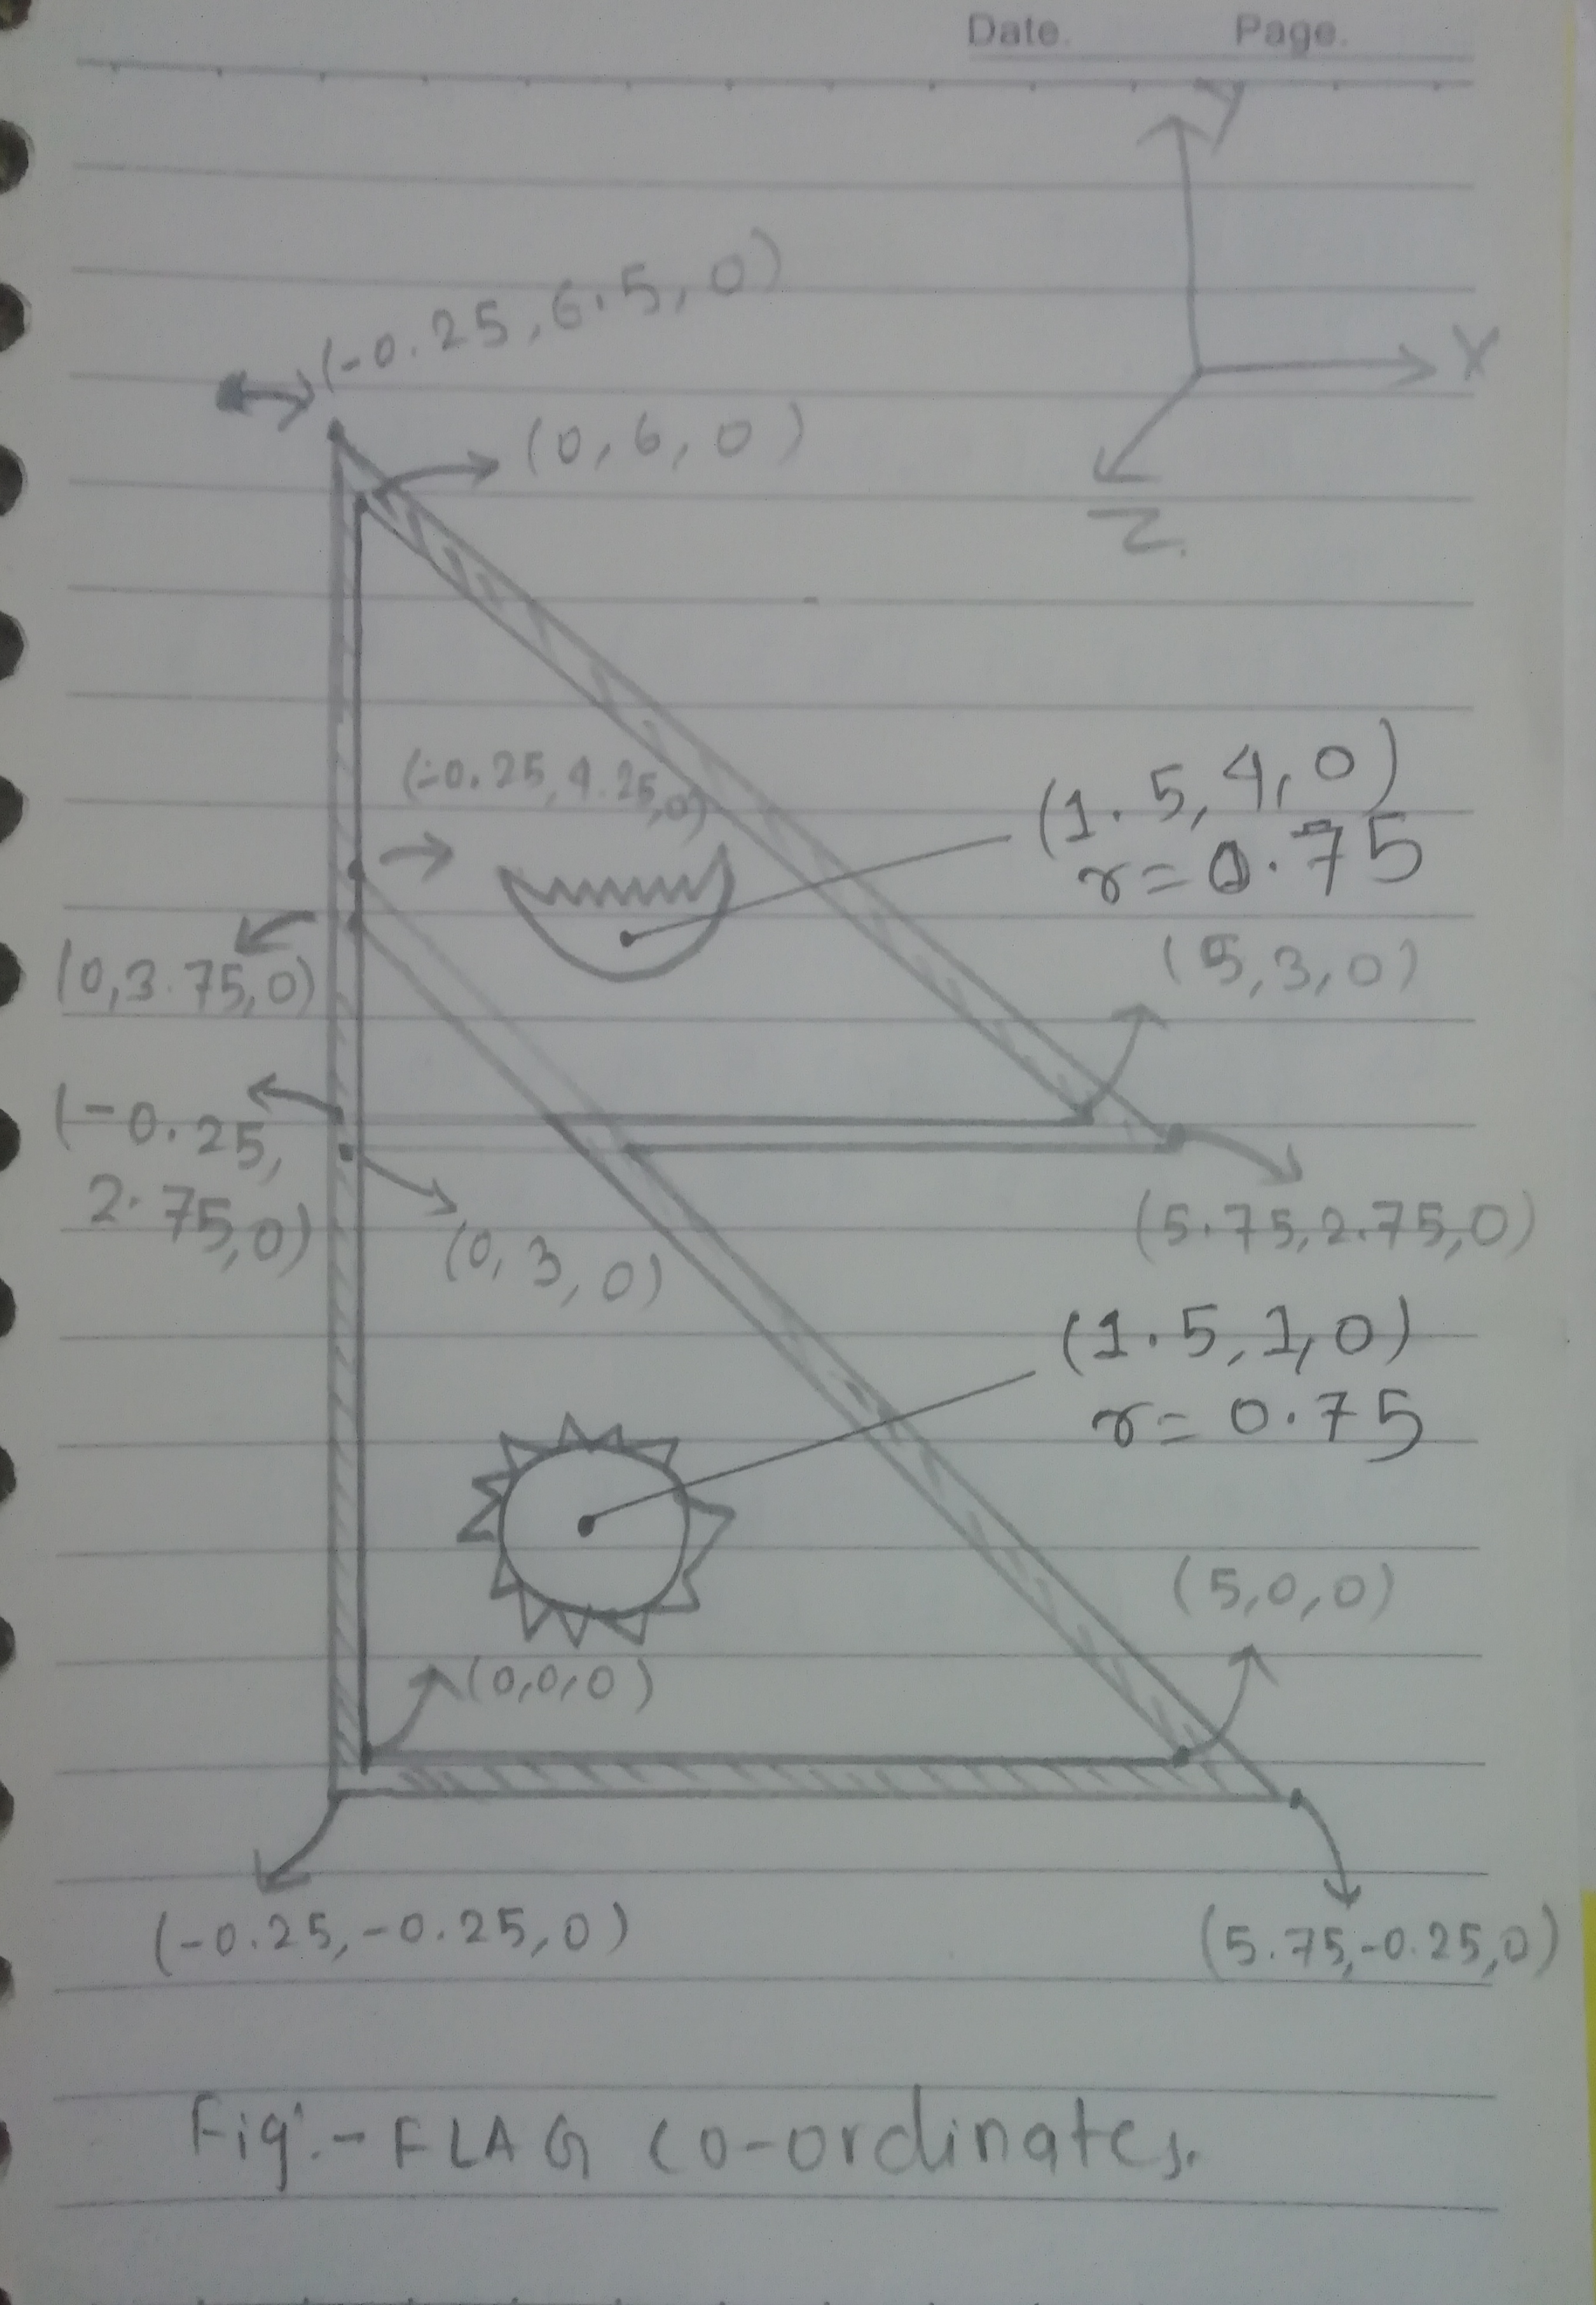 Date. Page.
Y
X
Z.
(-0.25,6.5,0)
(0,6,0)
(-0.25,4.25,0)
(1.5,4,0)
r=0.75
(5,3,0)
(0,3.75,0)
(-0.25,
2.75,0)
(0,3,0)
(5.75,2.75,0)
(1.5,1,0)
r=0.75
(5,0,0)
(0,0,0)
(-0.25,-0.25,0)
(5.75,-0.25,0)
Fig:- FLAG co-ordinates.